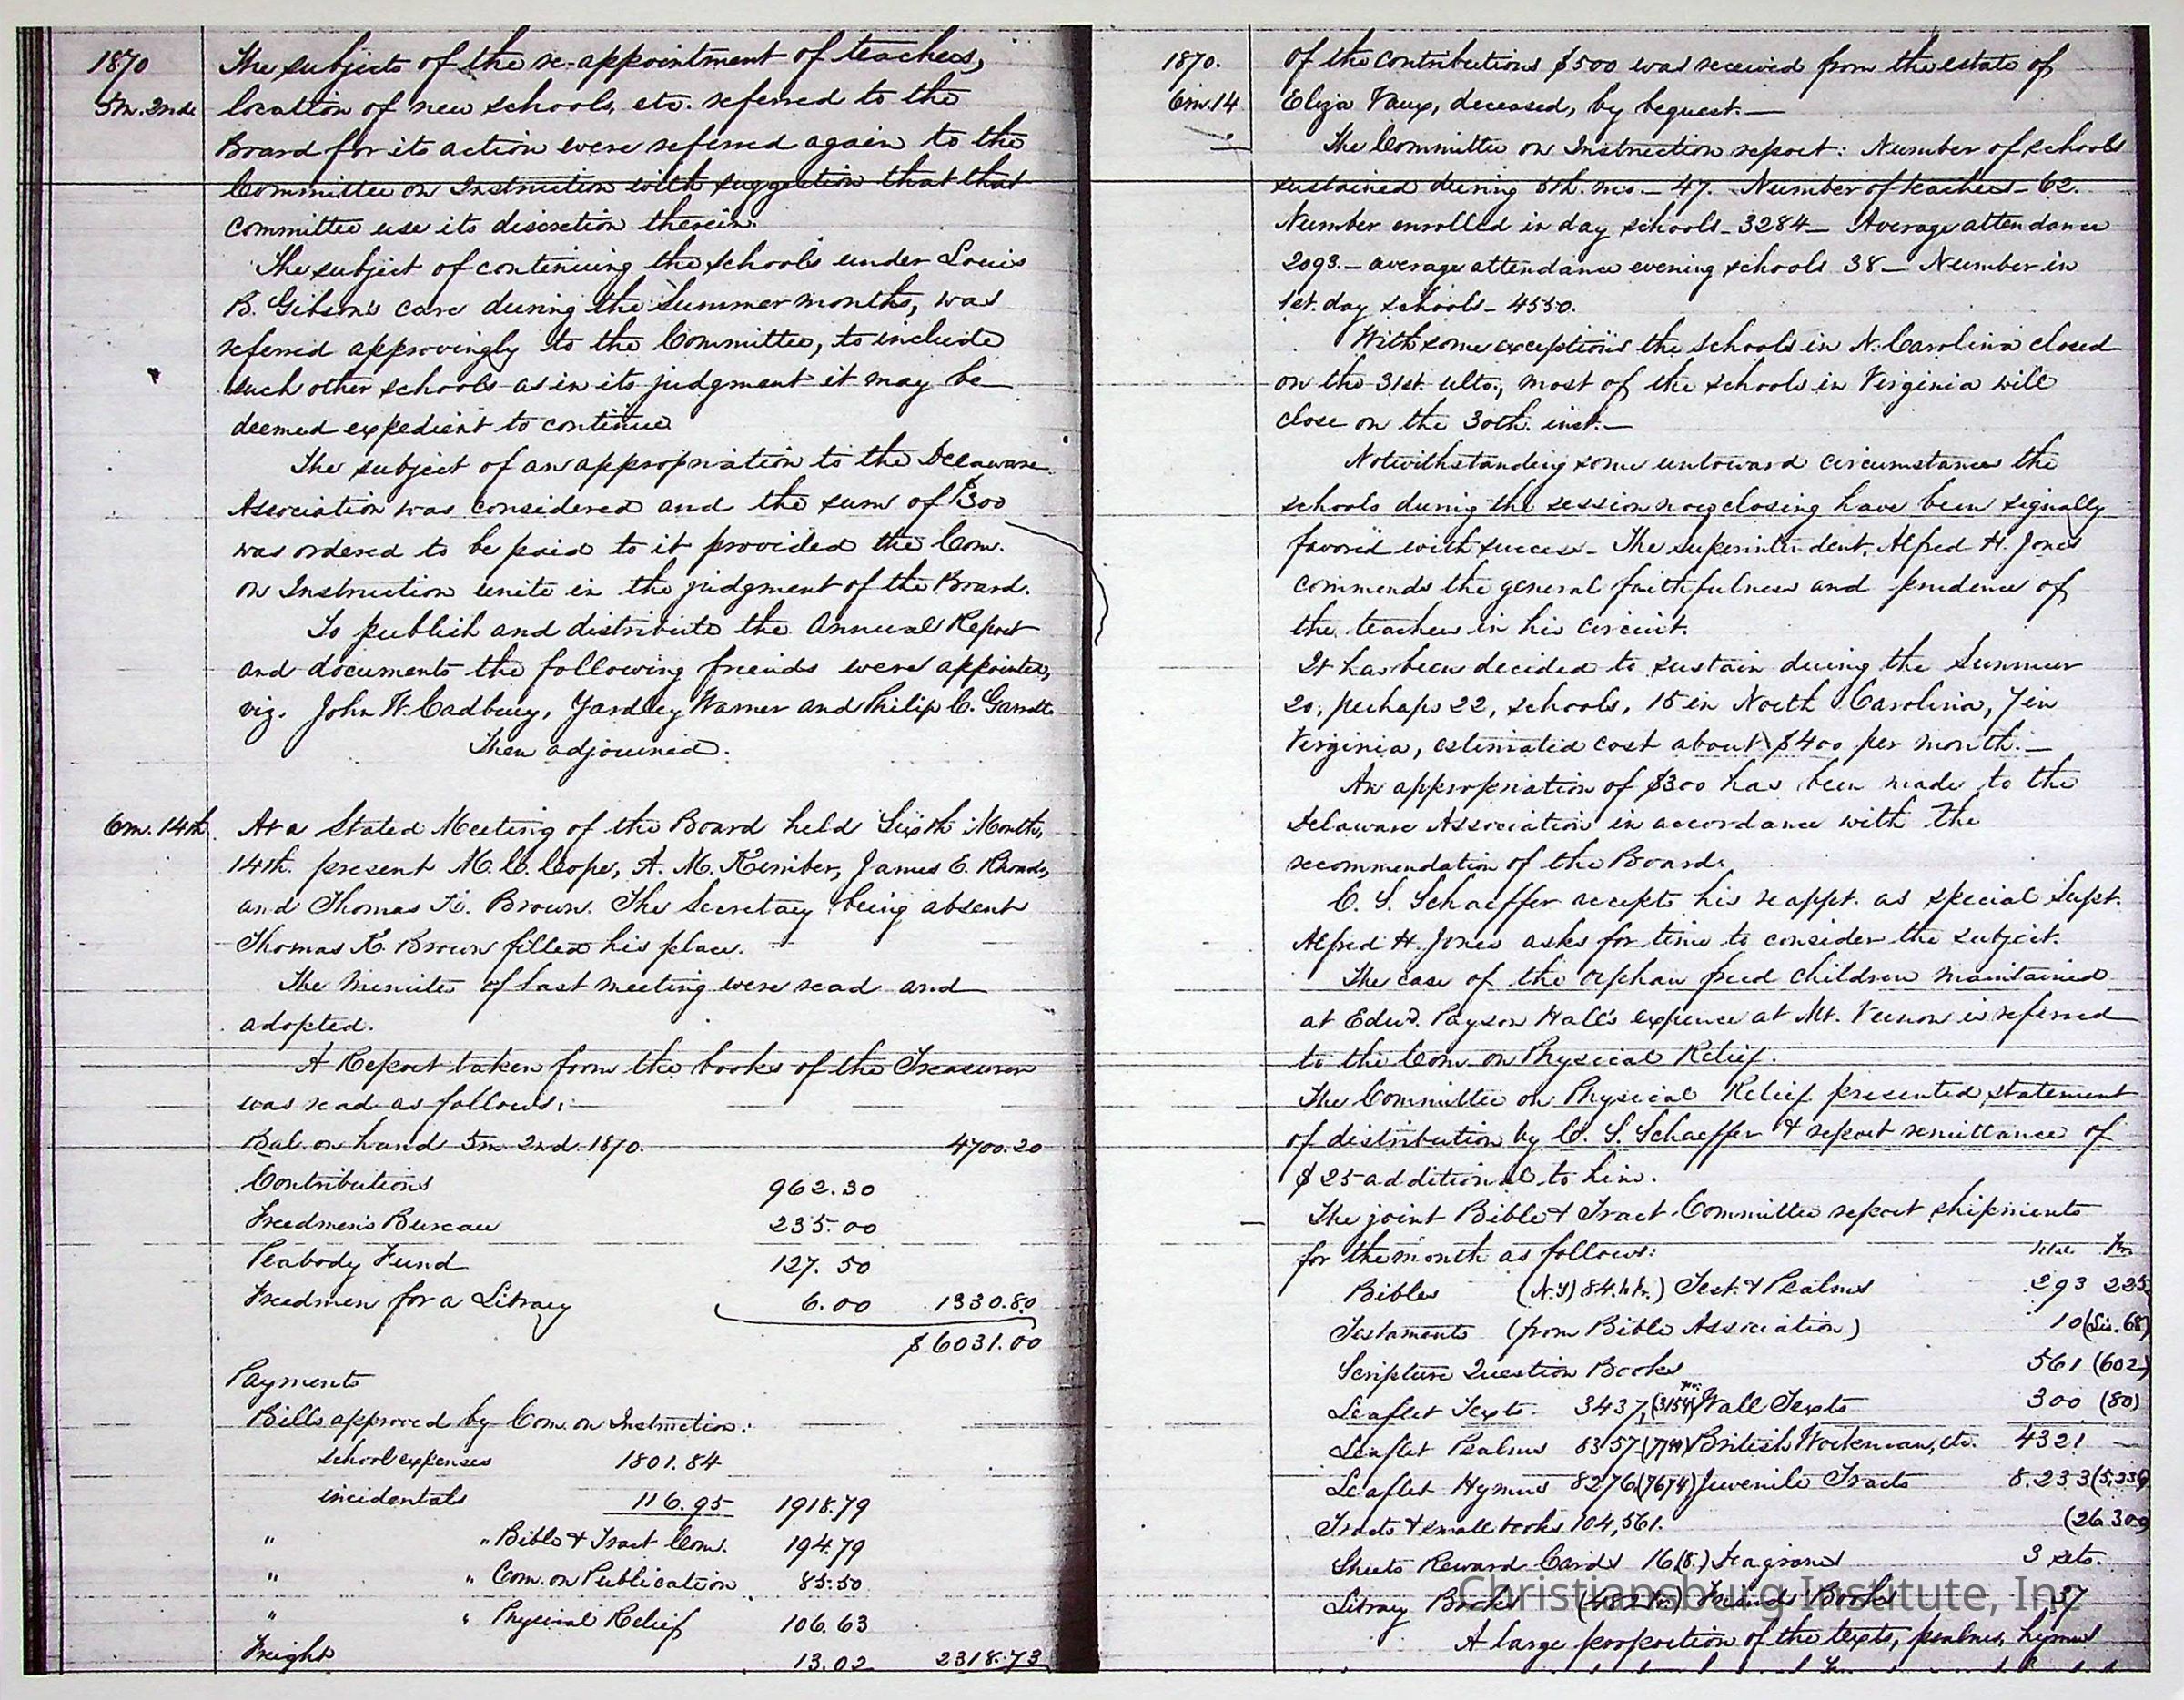 1870
5m. 2nd.
The subjects of the re-appointment of teachers,
location of new schools, etc. referred to the
Board for its action were referred again to the
Committee on Instruction with suggestion that that
committee use its discretion therein.
The subject of continuing the schools under Louis
B. Gibson's care during the Summer months, was
referred approvingly to the Committee, to include
such other schools as in its judgment it may be
deemed expedient to continue
The subject of an appropriation to the Delaware
Association was considered and the sum of $300
was ordered to be paid to it provided the Com.
on Instruction unite in the judgment of the Board.
To publish and distribute the Annual Report
and documents the following friends were appointed,
viz. John W. Cadbury, Yardley Warner and Philip C. Garrett
Then adjourned.
6m. 14th.
At a Stated Meeting of the Board held Sixth Month,
14th. present M. C. Cope, A. M. Kimber, James E. Rhoads,
and Thomas K. Brown. The Secretary being absent
Thomas K. Brown filled his place.
The minutes of last meeting were read and
adopted.
A Report taken from the books of the Treasurer
was read as follows:
Bal. on hand 5m 2nd. 1870. 4700.20
Contributions 962.30
Freedmen's Bureau 235.00
Peabody Fund 127.50
Freedmen for a Library 6.00 1330.80
$6031.00
Payments
Bills approved by Com. on Instruction:
school expenses 1801.84
incidentals 116.95 1918.79
" " Bible & Tract Com. 194.79
" " Com. on Publication 85.50
" " Physical Relief 106.63
Freight 13.02 2318.73
1870.
6m. 14
of the contributions $500 was received from the estate of
Eliza Vaux, deceased, by bequest.—
The Committee on Instruction report: Number of schools
sustained during 5th. mo.— 47. Number of teachers— 62.
Number enrolled in day schools— 3284— Average attendance
2093.— average attendance evening schools 38— Number in
1st. day schools— 4550.
With some exceptions the schools in N. Carolina closed
on the 31st. ulto., most of the schools in Virginia will
close on the 30th. inst.—
Notwithstanding some untoward circumstances the
schools during the session now closing have been signally
favored with success— The superintendent, Alfred H. Jones
commends the general faithfulness and prudence of
the teachers in his circuit.
It has been decided to sustain during the Summer
20, perhaps 22, schools, 15 in North Carolina, 7 in
Virginia, estimated cost about $400 per month.—
An appropriation of $300 has been made to the
Delaware Association in accordance with the
recommendation of the Board.
C. S. Schaeffer accepts his reappt. as special Supt.
Alfred H. Jones asks for time to consider the subject.
The case of the orphan freed children maintained
at Edwd. Payson Hall's expence at Mt. Vernon is referred
to the Com. on Physical Relief.
The Committee on Physical Relief presented statement
of distribution by C. S. Schaeffer & report remittance of
$25 additional to him.
The joint Bible & Tract Committee report shipments
for the month as follows:
Bibles Test. & Psalms 293 225
Testaments (from Bible Association) 10
Scripture Question Books 561 (602)
Leaflet Texts. 3437, (3154) Wall Texts 300 (80)
Leaflet Psalms 8357 British Workman, etc. 4321
Leaflet Hymns 8276 (7674) Juvenile Tracts 8.233
Tracts & small books 104,561.
Sheets Reward Cards 16 (8.) 3 sets.
Library Books Friends' Books
A large proportion of the texts, psalms, hymns
Christiansburg Institute, Inc